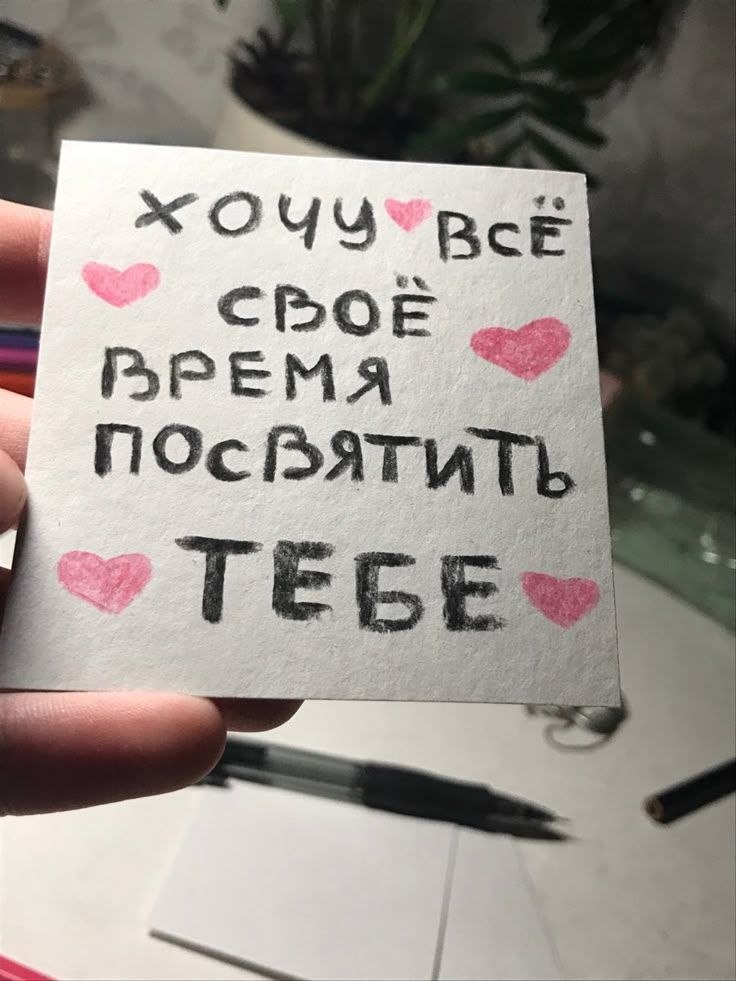 ХОЧУ ВСЁ
СВОЁ
ВРЕМЯ
ПОСВЯТИТЬ
ТЕБЕ